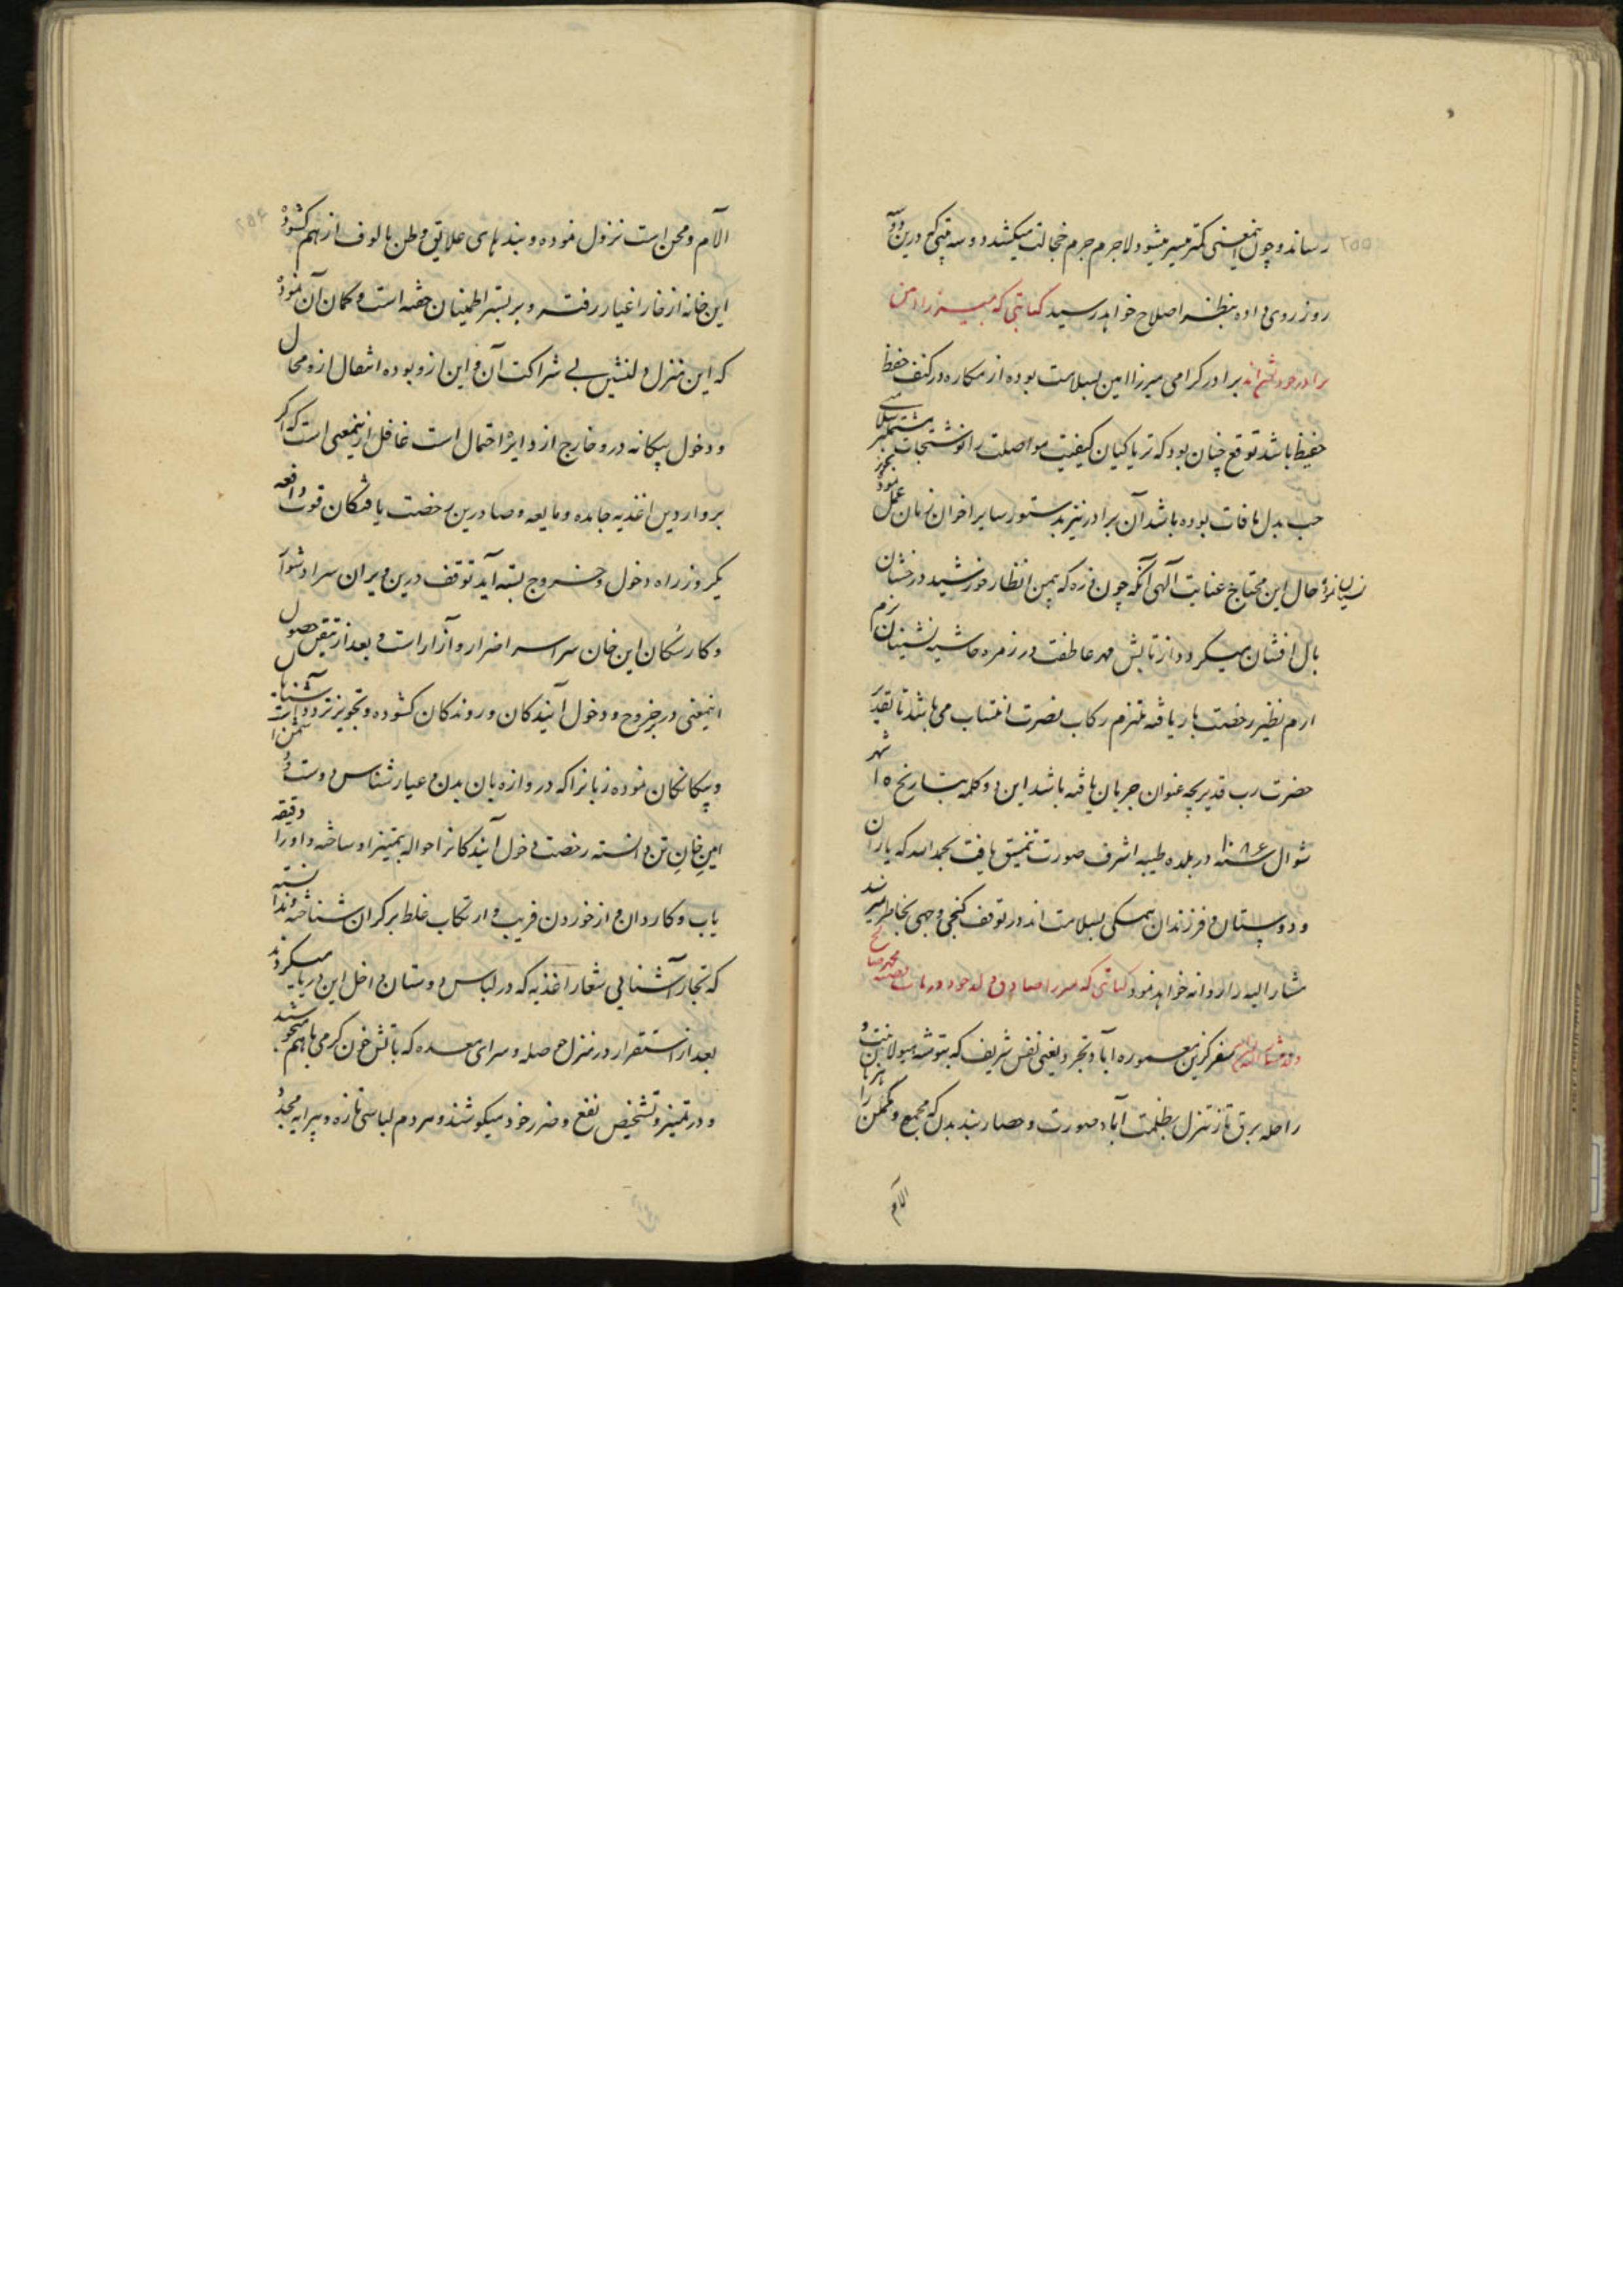 رساند و چون اینمعنی کمتر میسر میشود لاجرم جرم خجالت میکشد و سه بیتی که درین دو
روز روی داده بنظر اصلاح خواهد رسید کتابتی که
برادر گرامی میرزا امین بسلامت بوده از مکاره در کنف حفظ
حفیظ باشد توقع چنان بود که تریاکیان کیفیت مواصلت را نوشتجات
حب بدل مافات بوده باشد آن برادر نیز بدستور سایر اخوان زمان عمل نموده
حال این محتاج عنایت الهی آنکه چون ذره که بیمن انظار خورشید درخشان
بال افشان میگردد از تابش مهر عاطفت در زمره حاشیه نشینان بزم
ارم نظیر رخصت بار یافته ملتزم رکاب نصرت انتساب می باشد تا تقدیر
حضرت رب قدیر بچه عنوان جریان یافته باشد این دو کلمه بتاریخ ۱۵ شهر
شوال سنه ۱۰۸۶ در بلده طیبه اشرف صورت تنمیق یافت بحمد الله که یاران
و دوستان و فرزندان همگی بسلامت اند در توقف گنجی وجهی بخاطر نمیرسد
مشار الیه را روانه خواهد نمود کتابتی که میرزا صادق
سفر گزین معموره آباد تجرد یعنی نفس شریف که بتوشه
راحله برق تاز تنزل بظلمت آباد صورت و حصار بند بدن که مجمع و مکمن
الآم
۲۵۵
الآم و محن است نزول نموده و بندهای علایق وطن مالوف از هم گشوده
این خانه از خار اغیار رفته و بر بستر اطمینان خفته است و گمان آن نموده
که این منزل دلنشین بی شراکت آن و این ازو بوده انتقال ازو محال
و دخول بیگانه درو خارج از دایره احتمال است غافل ازینمعنی است که اگر
بر واردین اغذیه جامده و مایعه و صادرین رخصت یافتگان قوت دافعه
یکروز راه دخول و خروج بسته آید توقف درین ویران سرا دشوار
و کار سکان این خان سراسر اضرار و آزار است و بعد از تیقن حصول
اینمعنی در خروج و دخول آیندگان و روندگان گشوده و تجویز تردد آشنایان
و بیگانگان نموده زبانرا که دروازه بان بدن و عیار شناس دوست و دشمن است
امین خان تن دانسته رخصت دخول آیندگانرا حواله بتمیز او ساخته و او را دقیقه
یاب و کاردان و از خوردن فریب و ارتکاب غلط بر کران شناخته
که تجار آشنایی شعار اغذیه که در لباس دوستان داخل این دربا میگردند
بعد از استقرار در منزل حوصله و سرای معده که باتش خون گرمی با هم میجوشند
و در تمیز و تشخیص نفع و ضرر خود میکوشند و هر دم لباسی تازه و پیرایه مجدد